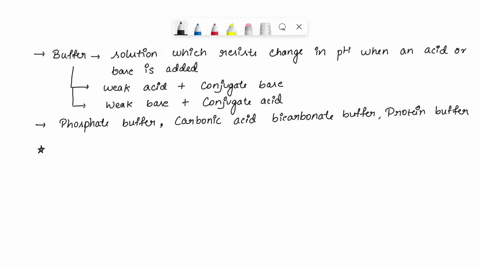 → Buffer → solution which resists change in pH when an acid or
base is added
→ weak acid + Conjugate base
→ weak base + Conjugate acid
→ Phosphate buffer, Carbonic acid bicarbonate buffer, Protein buffer
★